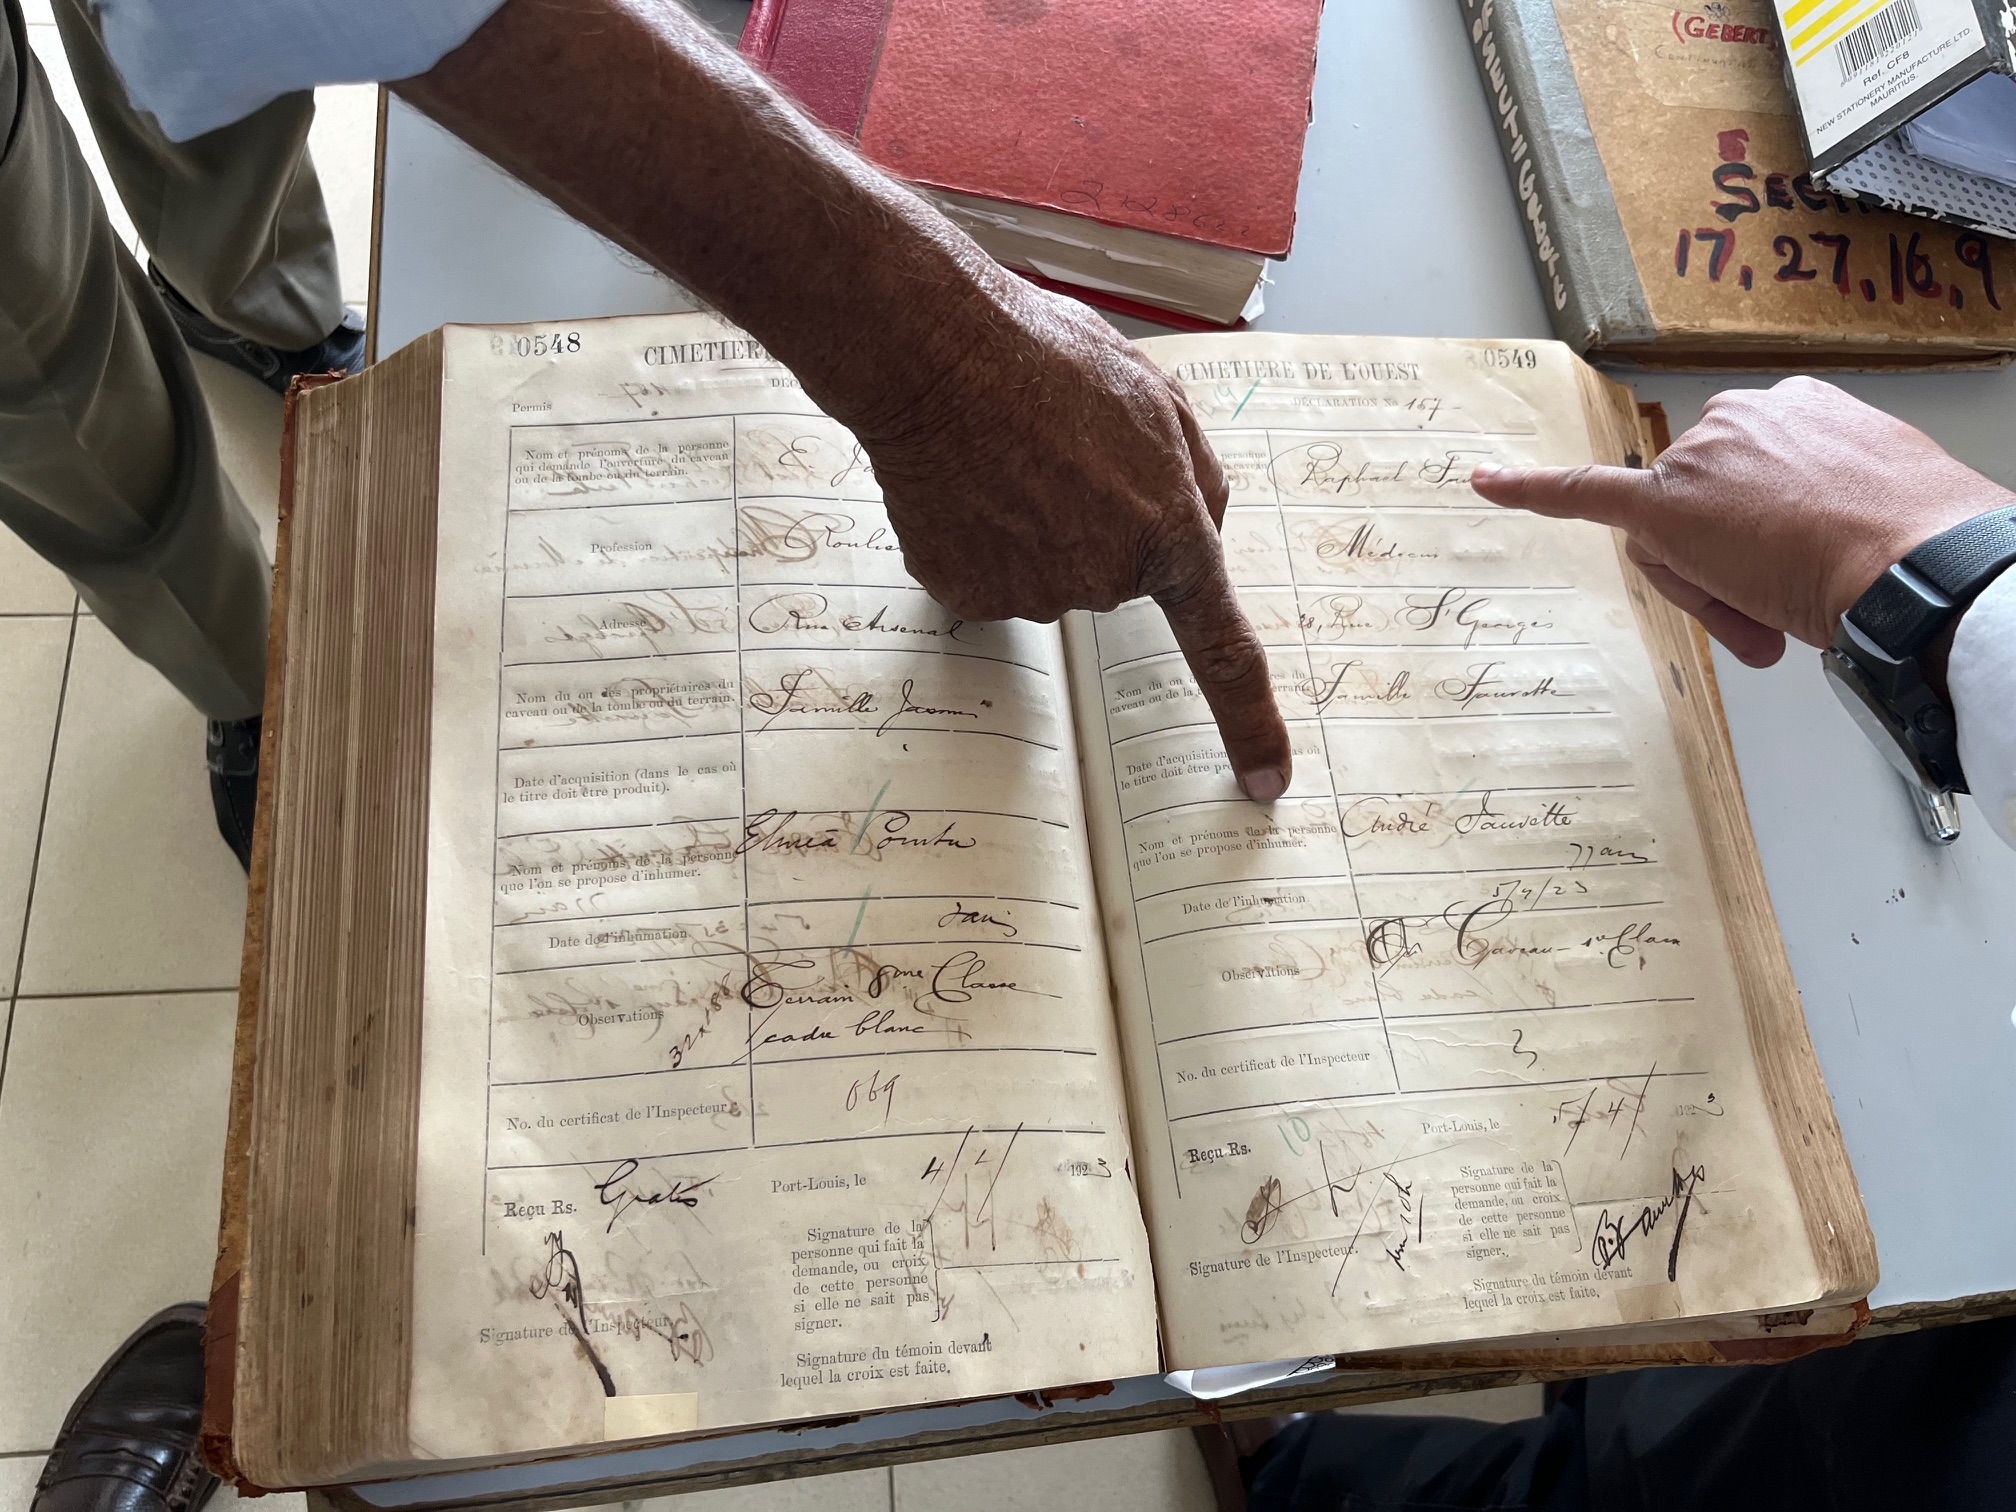 (GEBERT)
Ref. CFB
NEW STATIONERY MANUFACTURE LTD.
MAURITIUS.
17, 27, 16, 9
0548
CIMETIER
Permis
Nom et prénoms de la personne
qui demande l'ouverture du caveau
ou de la tombe ou du terrain.
E.
Profession
Adresse
Rue Arsenal
Nom du ou des propriétaires du
caveau ou de la tombe ou du terrain.
Famille
Date d'acquisition (dans le cas où
le titre doit être produit).
Nom et prénoms de la personne
que l'on se propose d'inhumer.
Date de l'inhumation.
Observations
Terrain 8me Classe
cadre blanc
No. du certificat de l'Inspecteur
069
Reçu Rs. Gratis
Port-Louis, le 4/ 192 3
Signature de l'Inspecteur.
Signature de la
personne qui fait la
demande, ou croix
de cette personne
si elle ne sait pas
signer.
Signature du témoin devant
lequel la croix est faite.
0549
CIMETIERE DE L'OUEST
DÉCLARATION No 167
personne
Raphael
Médecin
28, Rue St Georges
Nom du ou
caveau ou de la
Famille Fauvette
Date d'acquisition
as où
le titre doit être pro
Nom et prénoms de la personne
que l'on se propose d'inhumer.
André Fauvette
77 ans
Date de l'inhumation
5/4/23
Observations
Caveau
No. du certificat de l'Inspecteur
3
Reçu Rs.
Port-Louis, le 5/4/ 192 3
Signature de l'Inspecteur.
Signature de la
personne qui fait la
demande, ou croix
de cette personne
si elle ne sait pas
signer.
Signature du témoin devant
lequel la croix est faite.